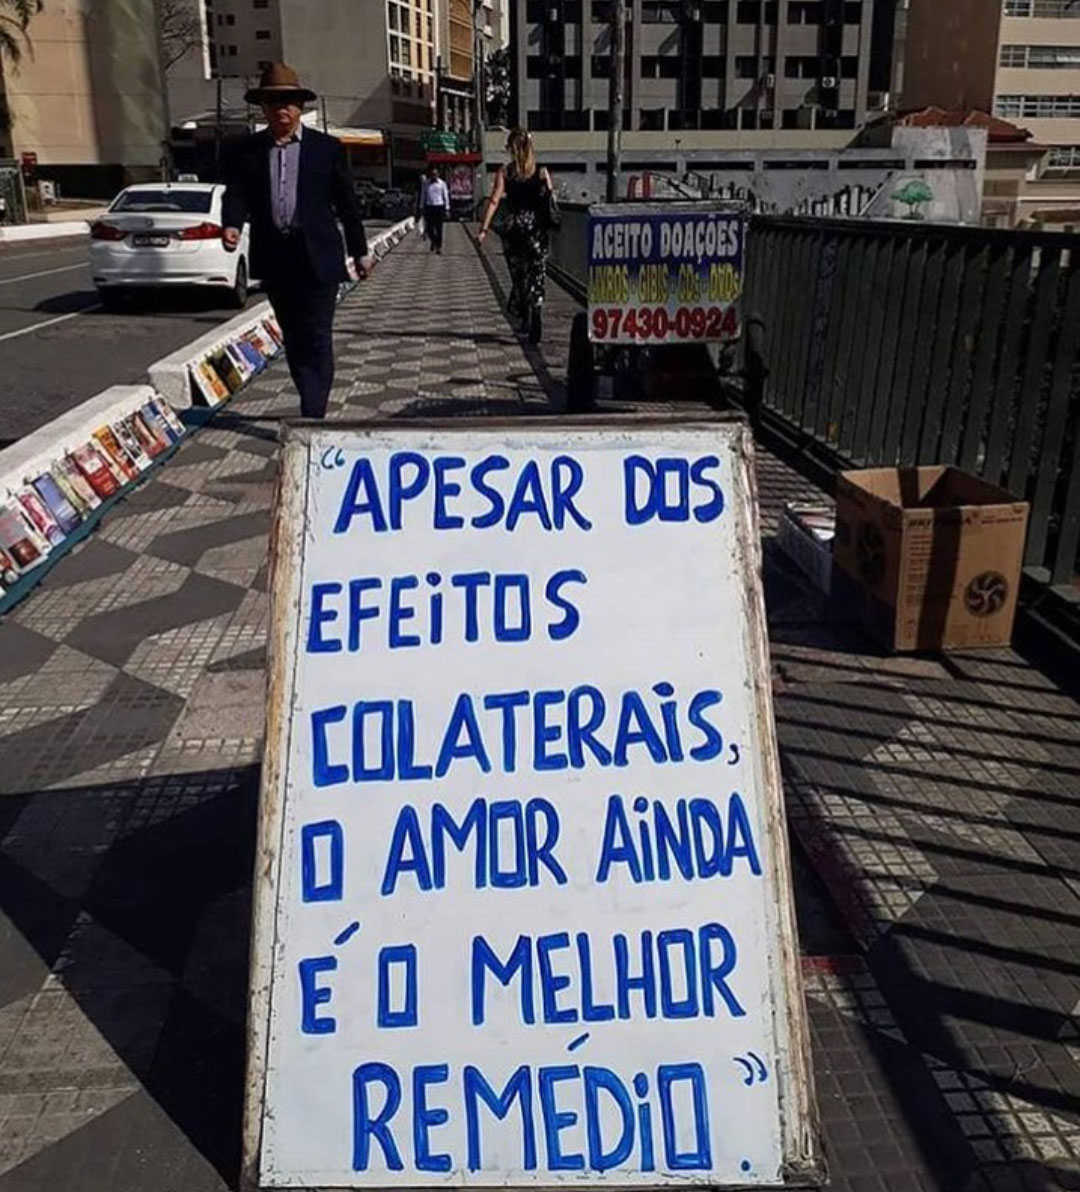 ACEITO DOAÇÕES
LIVROS - GIBIS - CDs - DVDs
97430-0924
“APESAR DOS
EFEITOS
COLATERAIS,
O AMOR AINDA
É O MELHOR
REMÉDIO”.